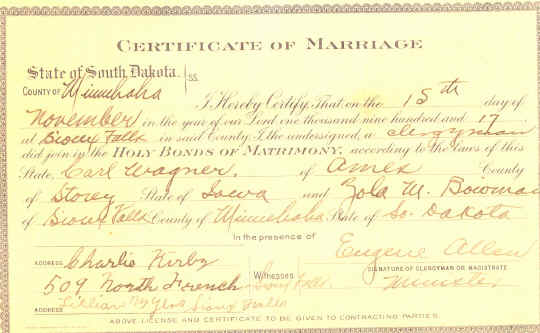 CERTIFICATE OF MARRIAGE
State of South Dakota. } ss.
COUNTY OF Minnehaha
I Hereby Certify, That on the 15th day of
November in the year of our Lord one thousand nine hundred and 17
at Sioux Falls in said County I, the undersigned, a clergyman
did join in the HOLY BONDS OF MATRIMONY, according to the laws of this
State, Carl Wagner, of Ames County
of Storey State of Iowa and Zola M. Bowman
of Sioux Falls County of Minnehaha State of So. Dakota
In the presence of
ADDRESS Charlie Kirby Eugene Allen
509 North French Witnesses Sioux Falls SIGNATURE OF CLERGYMAN OR MAGISTRATE
Minister
ADDRESS Lillian Sioux Falls
ABOVE LICENSE AND CERTIFICATE TO BE GIVEN TO CONTRACTING PARTIES.